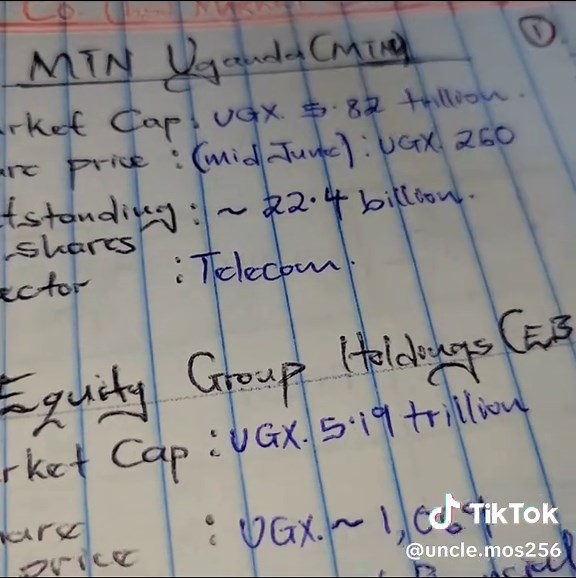 ①
MTN Uganda (MTN)
rket Cap: UGX. 5.82 trillion.
are price : (mid-June): UGX. 260
tstanding: ~ 22.4 billion.
shares
ector : Telecom.
Equity Group Holdings (EB
rket Cap : UGX. 5.19 trillion
hare : UGX. ~ 1,
price
TikTok
@uncle.mos256